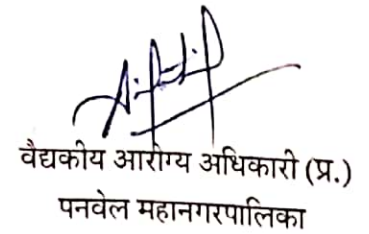 वैद्यकीय आरोग्य अधिकारी (प्र.)
पनवेल महानगरपालिका